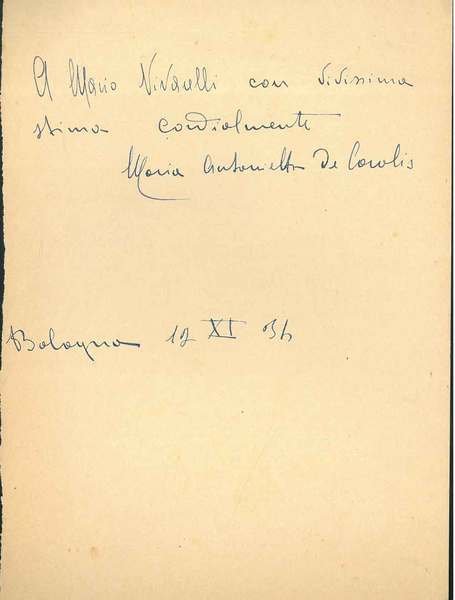 A Mario Vivarelli con vivissima
stima cordialmente
Maria Antonietta De Carolis
Bologna XI